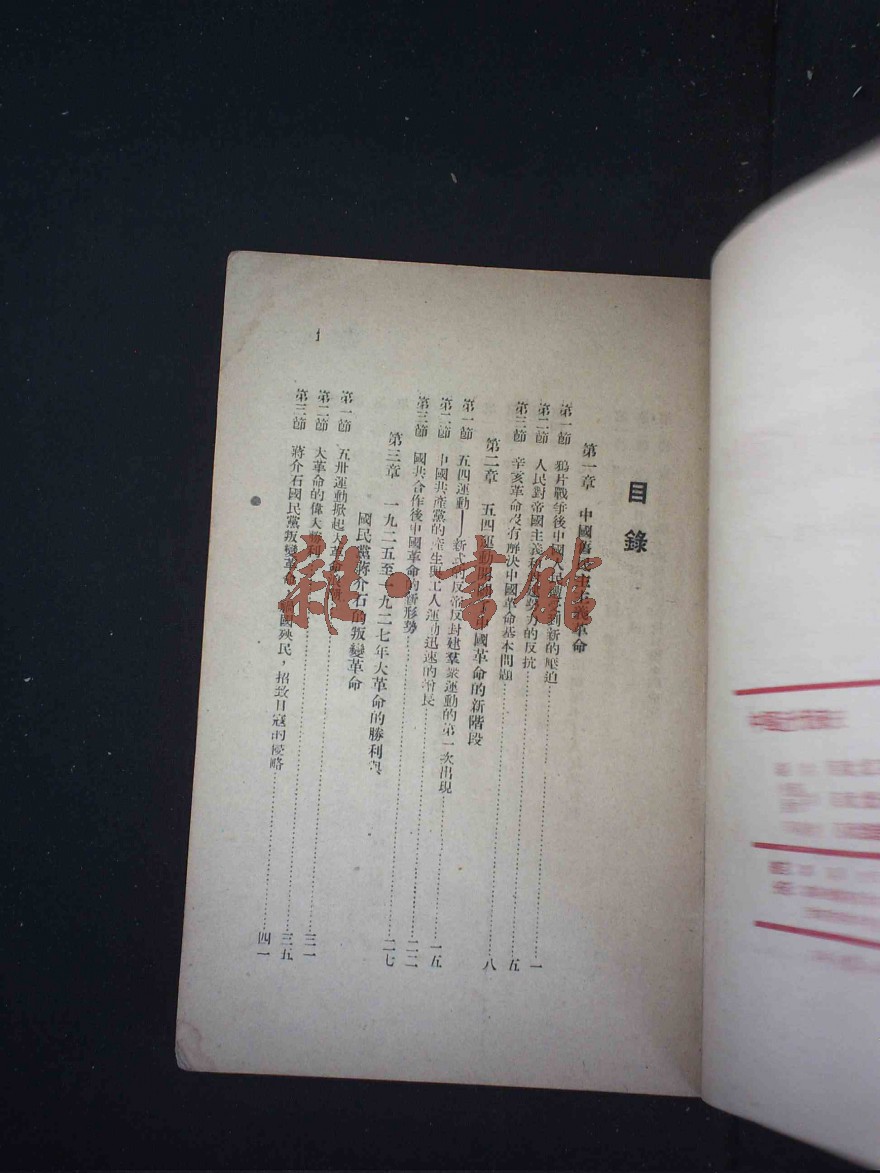 目錄
第一章 中國舊民主主義革命
第一節 鴉片戰爭後中國人民遭到新的壓迫……一
第二節 人民對帝國主義和封建勢力的反抗……五
第三節 辛亥革命沒有解決中國革命基本問題……八
第二章 五四運動開闢了中國革命的新階段
第一節 五四運動——新式的反帝反封建羣眾運動的第一次出現……一五
第二節 中國共產黨的產生與工人運動迅速的增長……二二
第三節 國共合作後中國革命的新形勢……二七
第三章 一九二五至一九二七年大革命的勝利與
國民黨蔣介石的叛變革命
第一節 五卅運動掀起大革命高潮……三一
第二節 大革命的偉大勝利……三五
第三節 蔣介石國民黨叛變革命，禍國殃民，招致日寇的侵略……四一
1
雜·書館